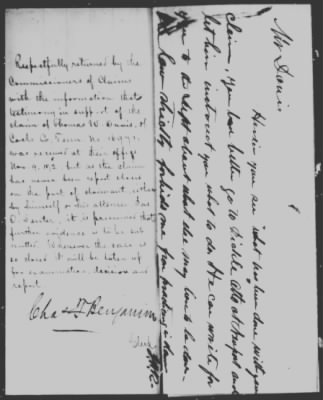 Respectfully returned by the
Commissioners of Claims
with the information that
testimony in support of the
claim of Thomas W. Davis, of
Cocke Co. Tenn. No.
was received at their office
Nov. 9, but as the claim
has never been report closed
on the part of claimant, either
by himself or his attorney
it is presumed that
further evidence is to be sub-
mitted. Whenever the case is
so closed it will be taken up
for examination, decision and
report.
Chas. F. Benjamin
Clerk
Mr Davis
Herein you see what has been done with your
claim. You had better go to Pickle atto at Newport and
let him instruct you what to do. He can write for
you to about what else may have to be done
law strictly forbids me from